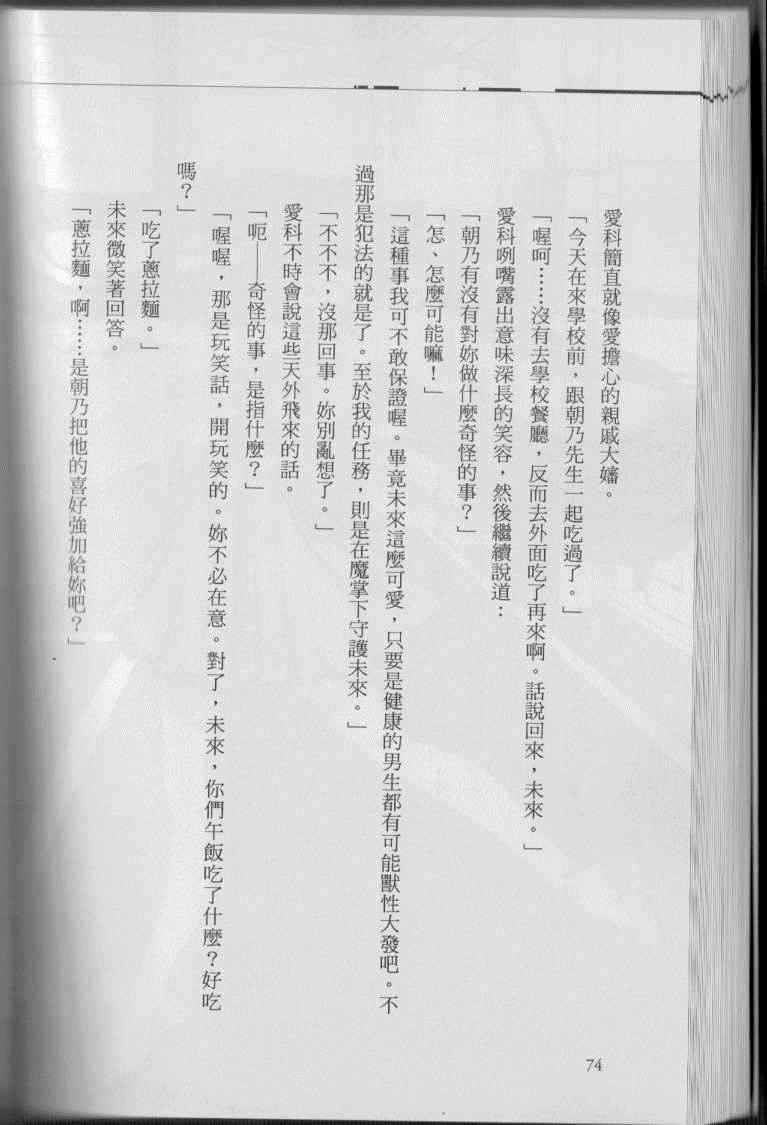 愛科簡直就像愛擔心的親戚大嬸。
「今天在來學校前，跟朝乃先生一起吃過了。」
「喔呵……沒有去學校餐廳，反而去外面吃了再來啊。話說回來，未來。」
愛科咧嘴露出意味深長的笑容，然後繼續說道：
「朝乃有沒有對妳做什麼奇怪的事？」
「怎、怎麼可能嘛！」
「這種事我可不敢保證喔。畢竟未來這麼可愛，只要是健康的男生都有可能獸性大發吧。不
過那是犯法的就是了。至於我的任務，則是在魔掌下守護未來。」
「不不不，沒那回事。妳別亂想了。」
愛科不時會說這些天外飛來的話。
「呃——奇怪的事，是指什麼？」
「喔喔，那是玩笑話，開玩笑的。妳不必在意。對了，未來，你們午飯吃了什麼？好吃
嗎？」
「吃了蔥拉麵。」
未來微笑著回答。
「蔥拉麵，啊……是朝乃把他的喜好強加給妳吧？」
74